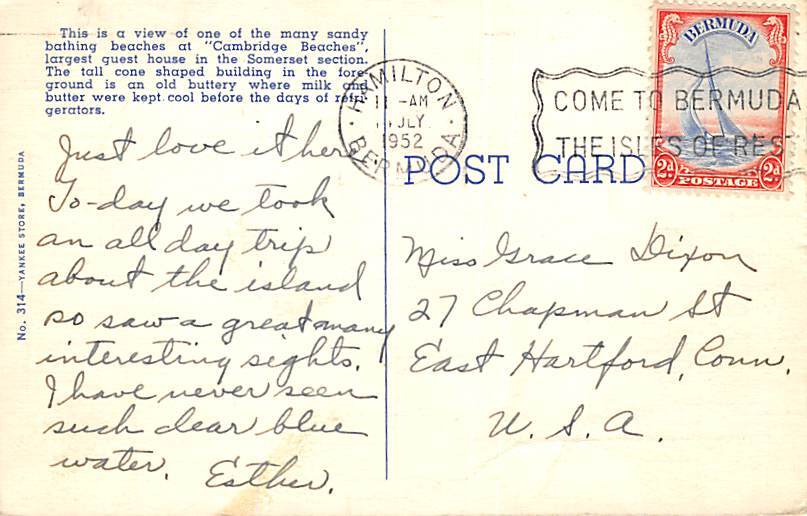 This is a view of one of the many sandy
bathing beaches at "Cambridge Beaches",
largest guest house in the Somerset section.
The tall cone shaped building in the fore-
ground is an old buttery where milk and
butter were kept cool before the days of refri-
gerators.
Just love it here.
To-day we took
an all day trip
about the island
so saw a great many
interesting sights.
I have never seen
such clear blue
water. Esther.
No. 314—YANKEE STORE, BERMUDA
HAMILTON
11 -AM
JLY
1952
BERMUDA
COME TO BERMUDA
THE ISLES OF REST
BERMUDA
2d 2d
POSTAGE
POST CARD
Miss Grace Dixon
27 Chapman St
East Hartford, Conn.
U. S. A.